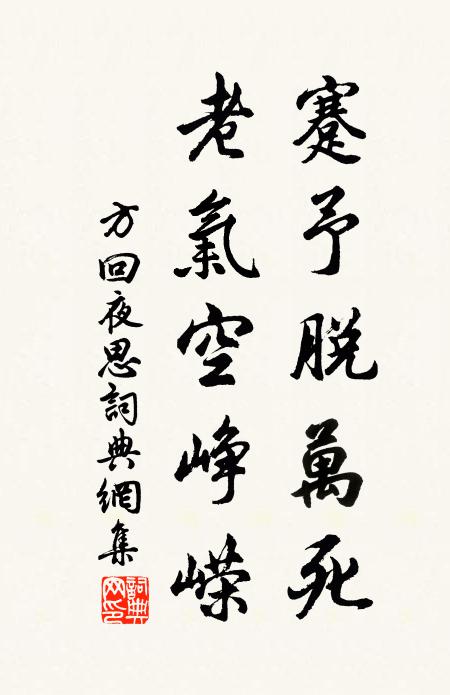 蹇予脱萬死
老氣空峥嶸
方回夜思詞典網集
詞典网印